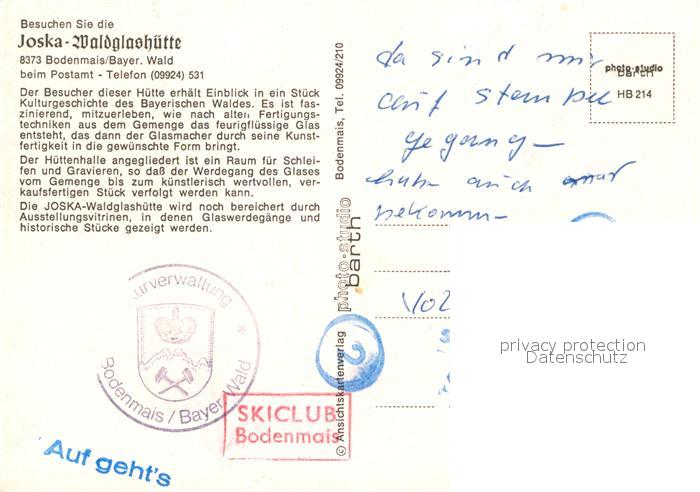 Besuchen Sie die
Joska-Waldglashütte
8373 Bodenmais/Bayer. Wald
beim Postamt - Telefon (09924) 531
Der Besucher dieser Hütte erhält Einblick in ein Stück
Kulturgeschichte des Bayerischen Waldes. Es ist fas-
zinierend, mitzuerleben, wie nach alten Fertigungs-
techniken aus dem Gemenge das feurigflüssige Glas
entsteht, das dann der Glasmacher durch seine Kunst-
fertigkeit in die gewünschte Form bringt.
Der Hüttenhalle angegliedert ist ein Raum für Schlei-
fen und Gravieren, so daß der Werdegang des Glases
vom Gemenge bis zum künstlerisch wertvollen, ver-
kaufsfertigen Stück verfolgt werden kann.
Die JOSKA-Waldglashütte wird noch bereichert durch
Ausstellungsvitrinen, in denen Glaswerdegänge und
historische Stücke gezeigt werden.
urverwaltung
Bodenmais / Bayer. Wald *
SKICLUB
Bodenmais
Auf geht's
© Ansichtskartenverlag photo-studio barth Bodenmais, Tel. 09924/210
da sind wir
auf Stempel
gegang-
hab- auch
bekomm-
photo-studio
barth
HB 214
privacy protection
Datenschutz